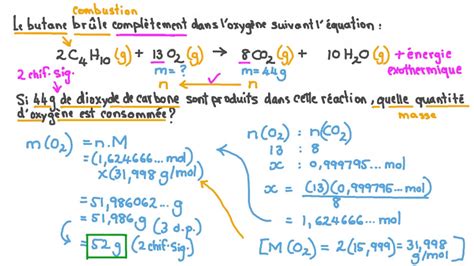 combustion
Le butane brûle complètement dans l'oxygène suivant l'équation :
2C₄H₁₀(g) + 13O₂(g) → 8CO₂(g) + 10H₂O(g) + énergie
exothermique
2 chif. sig. m = ? m = 44g
n ← n
Si 44g de dioxyde de carbone sont produits dans cette réaction, quelle quantité
masse
d'oxygène est consommée ?
m(O₂) = n.M
= (1,624666... mol)
x(31,998 g/mol)
= 51,986062... g
= 51,986 g (3 d.p.)
= 52 g (2 chif. sig.)
n(O₂) : n(CO₂)
13 : 8
x : 0,999795... mol
x = (13)(0,999795... mol)
8
= 1,624666... mol
[M(O₂) = 2(15,999) = 31,998 g/mol]